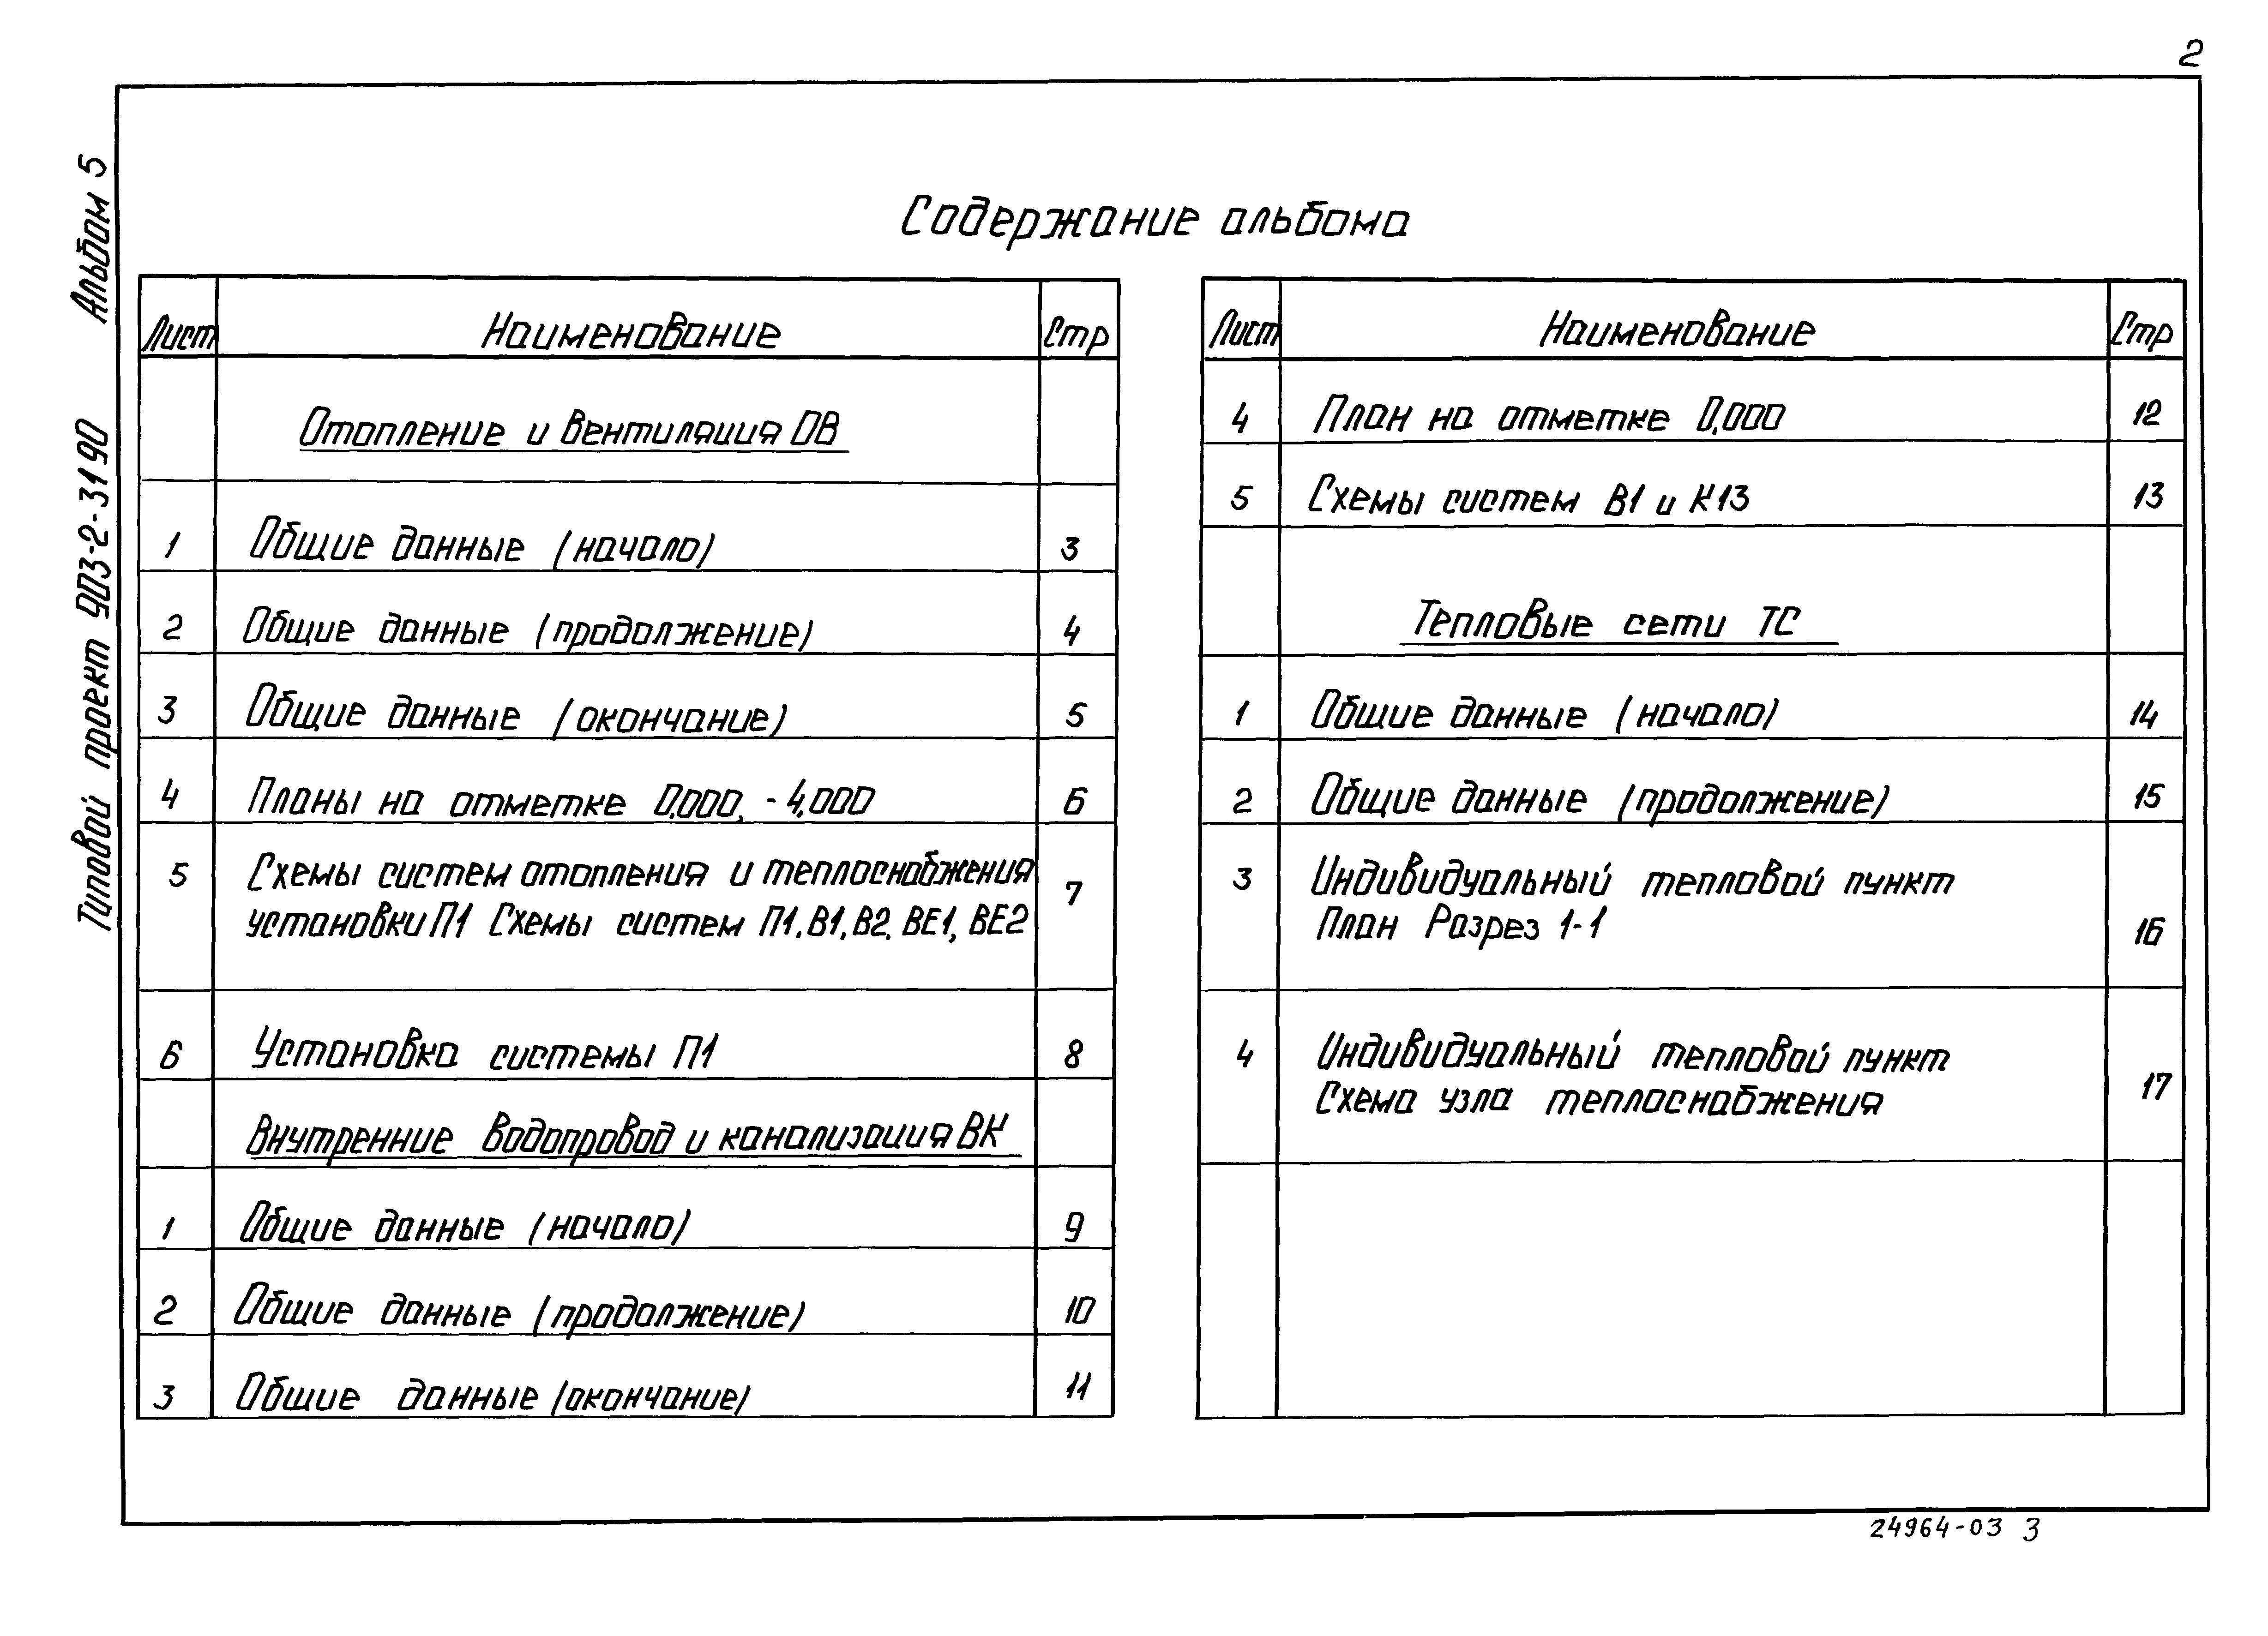 2
Альбом 5
Типовой проект 903-2-31 90
Содержание альбома
Лист Наименование Стр
Отопление и вентиляция ОВ
1 Общие данные (начало) 3
2 Общие данные (продолжение) 4
3 Общие данные (окончание) 5
4 Планы на отметке 0,000, -4,000 6
5 Схемы систем отопления и теплоснабжения
установки П1 Схемы систем П1, В1, В2, ВЕ1, ВЕ2 7
6 Установка системы П1 8
Внутренние водопровод и канализация ВК
1 Общие данные (начало) 9
2 Общие данные (продолжение) 10
3 Общие данные (окончание) 11
Лист Наименование Стр
4 План на отметке 0,000 12
5 Схемы систем В1 и К13 13
Тепловые сети ТС
1 Общие данные (начало) 14
2 Общие данные (продолжение) 15
3 Индивидуальный тепловой пункт
План Разрез 1-1 16
4 Индивидуальный тепловой пункт
Схема узла теплоснабжения 17
24964-03 3